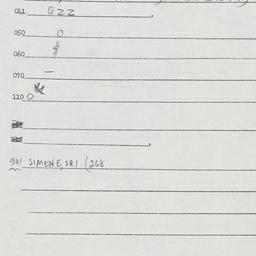 041 QZZ
050 O
060 $
070 —
110 O
901 SIMENE, SRI (268